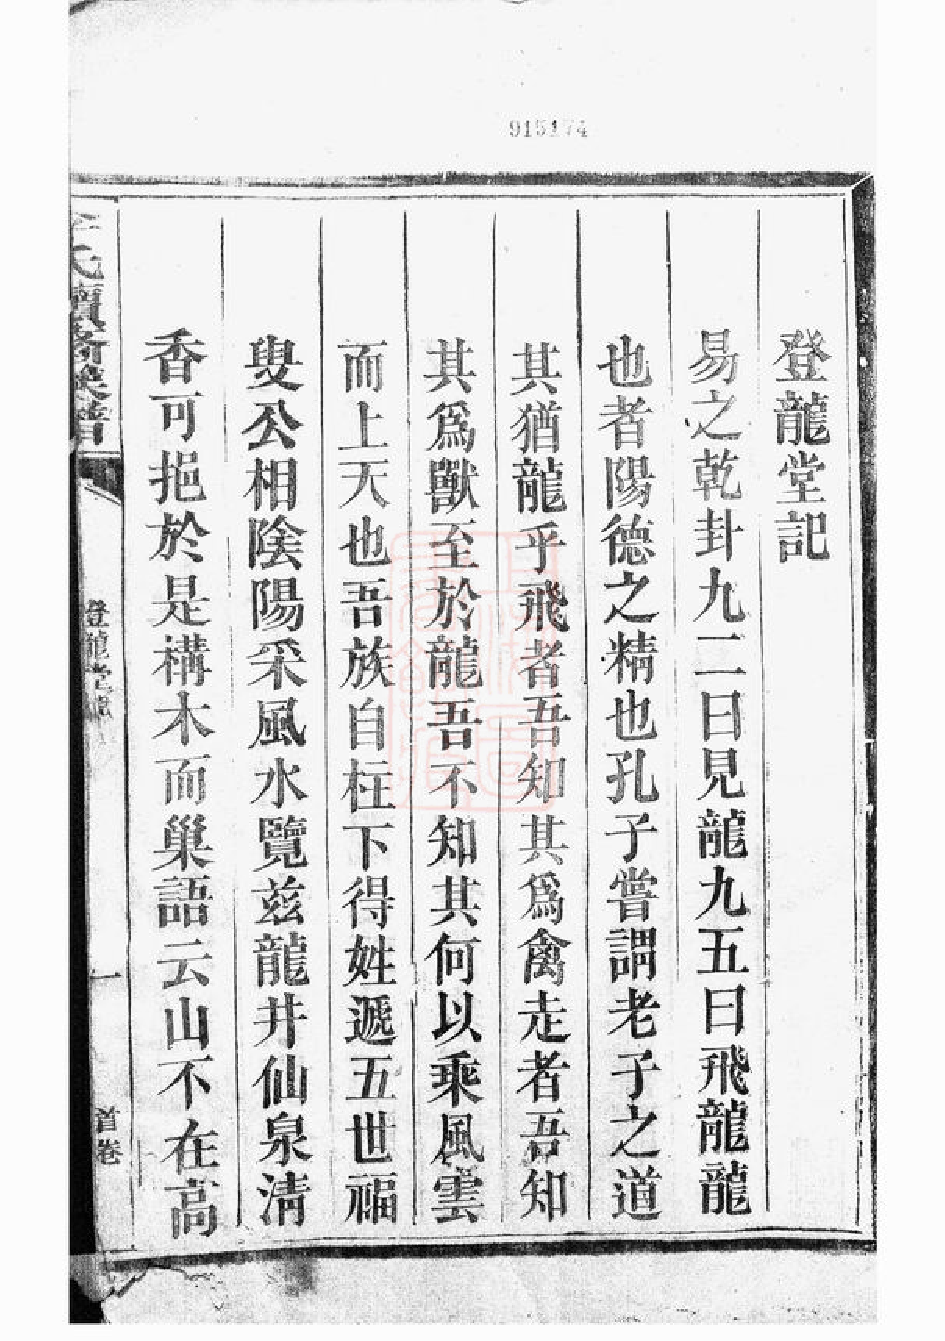 915174
登龍堂記
易之乾卦九二曰見龍九五曰飛龍龍
也者陽德之精也孔子嘗謂老子之道
其猶龍乎飛者吾知其爲禽走者吾知
其爲獸至於龍吾不知其何以乘風雲
而上天也吾族自柱下得姓遞五世福
叟公相陰陽采風水覽兹龍井仙泉清
香可挹於是構木而巢語云山不在高
李氏續脩族譜
登龍堂記
一
首卷